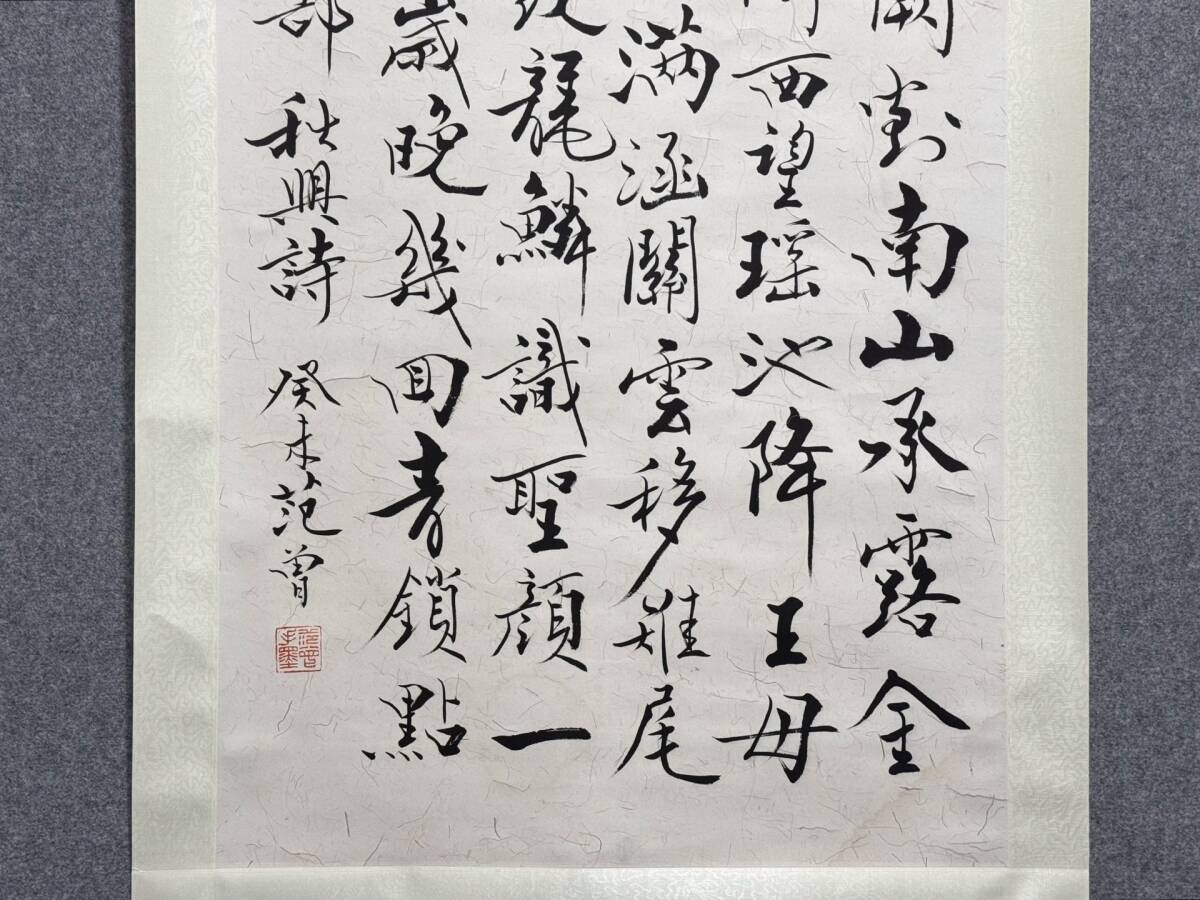 闕對南山承露金
間西望瑶池降王母
滿涵關雲移雉尾
龍鱗識聖顏一
歲晚幾回青鎖點
部秋興詩 癸未范曾
范曾手墨